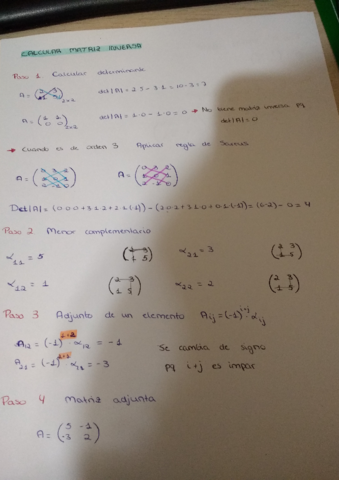 CALCULAR MATRIZ INVERSA
Paso 1. Calcular determinante
A = (2 3 / 1 5) 2x2 det|A| = 2·5 - 3·1 = 10 - 3 = 7
A = (1 2 / 0 0) 2x2 det|A| = 1·0 - 1·0 = 0 → No tiene matriz inversa pq
det|A| = 0
→ Cuando es de orden 3 Aplicar regla de Sarrus
A = A =
Det|A| =
Paso 2. Menor complementario
α11 = 5 (2 3 / 1 5) α21 = 3 (2 3 / 1 5)
α12 = 1 (2 3 / 1 5) α22 = 2 (2 3 / 1 5)
Paso 3 Adjunto de un elemento Aij = (-1)^i+j · αij
A12 = (-1) · α12 = -1 Se cambia de signo
= (-1) = -3 pq i+j es impar
Paso 4 Matriz adjunta
A = (5 -1 / -3 2)